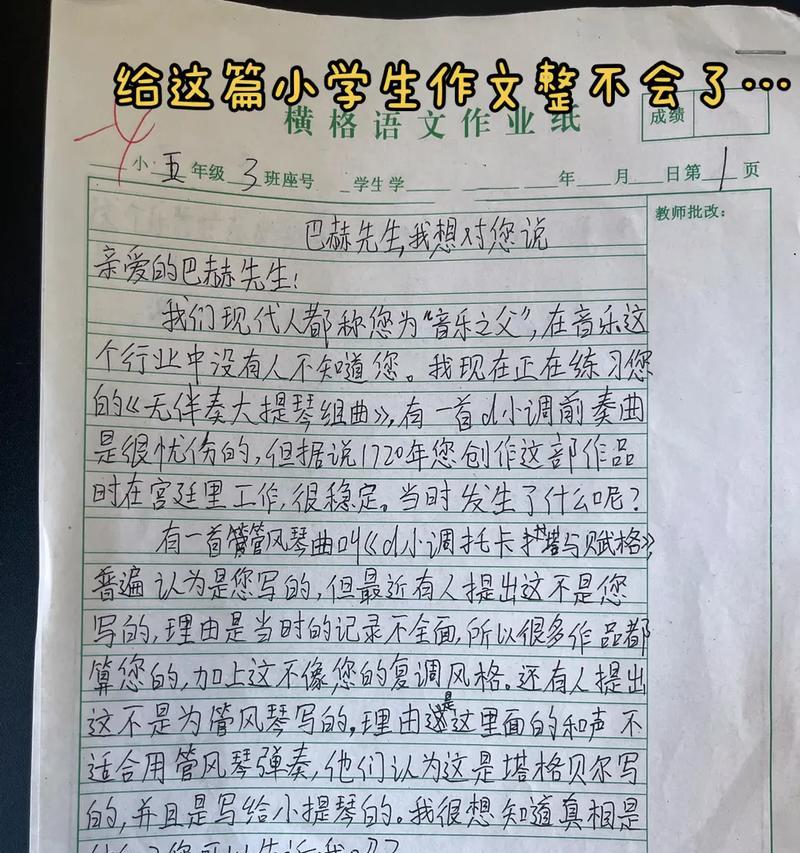 给这篇小学生作文整不会了…
横格语文作业纸
成绩
小五年级3班座号 学生学 年 月 日第1页
教师批改：
巴赫先生，我想对您说
亲爱的巴赫先生：
我们现代人都称您为“音乐之父”，在音乐这
个行业中没有人不知道您。我现在正在练习您
的《无伴奏大提琴组曲》，有一首d小调前奏曲
是很忧伤的，但据说1720年您创作这部作品
时在宫廷里工作，很稳定。当时发生了什么呢？
有一首管风琴曲叫《d小调托卡塔与赋格》
普遍认为是您写的，但最近有人提出这不是您
写的，理由是当时的记录不全面，所以很多作品都
算您的，加上这不像您的复调风格。还有人提出
这不是为管风琴写的，理由是这里面的和声不
适合用管风琴弹奏，他们认为这是塔格贝尔写
的，并且是写给小提琴的。我很想知道真相是